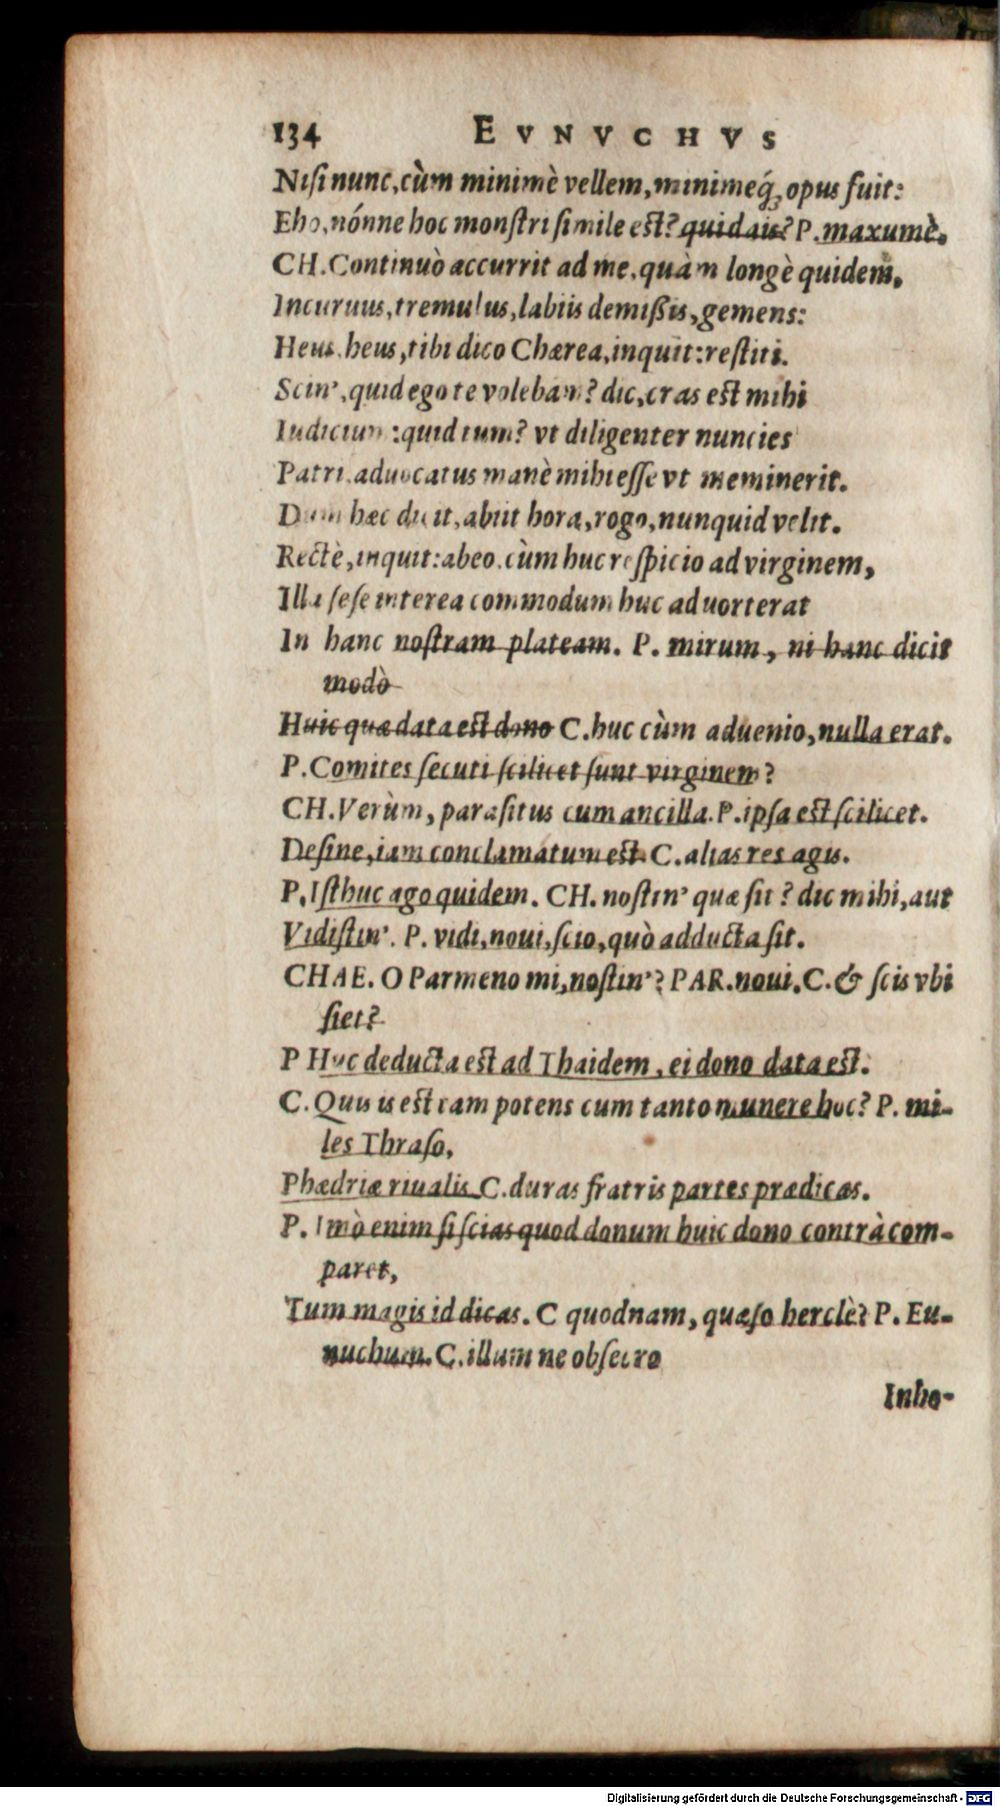 134 EVNVCHVS
Nisi nunc, cùm minimè vellem, minimeq́; opus fuit:
Eho, nónne hoc monstri simile est? quid ais? P. maxumè.
CH. Continuò accurrit ad me, quàm longè quidem,
Incuruus, tremulus, labiis demißis, gemens:
Heus heus, tibi dico Chærea, inquit: restiti.
Scin', quid ego te volebam? dic, cras est mihi
Iudicium: quid tum? vt diligenter nuncies
Patri. aduocatus manè mihi esse vt meminerit.
Dum hæc dicit, abiit hora, rogo, nunquid velit.
Rectè, inquit: abeo. cùm huc respicio ad virginem,
Illa sese interea commodum huc aduorterat
In hanc nostram plateam. P. mirum, ni hanc dicit
modò
Huic quæ data est dono C. huc cùm aduenio, nulla erat.
P. Comites secuti scilicet sunt virginem?
CH. Verùm, parasitus cum ancilla. P. ipsa est scilicet.
Desine, iam conclamatum est. C. alias res agis.
P. Isthuc ago quidem. CH. nostin' quæ sit? dic mihi, aut
Vidistin'. P. vidi, noui, scio, quò adducta sit.
CHAE. O Parmeno mi, nostin'? PAR. noui. C. & scis vbi
siet?
P Huc deducta est ad Thaidem, ei dono data est.
C. Quis is est tam potens cum tanto munere hoc? P. mi-
les Thraso,
Phædriæ riualis C. duras fratris partes prædicas.
P. Imò enim si scias quod donum huic dono contrà com-
paret,
Tum magis id dicas. C quodnam, quæso herclè? P. Eu-
nuchum. C. illum ne obsecro
Inho-
Digitalisierung gefördert durch die Deutsche Forschungsgemeinschaft - DFG